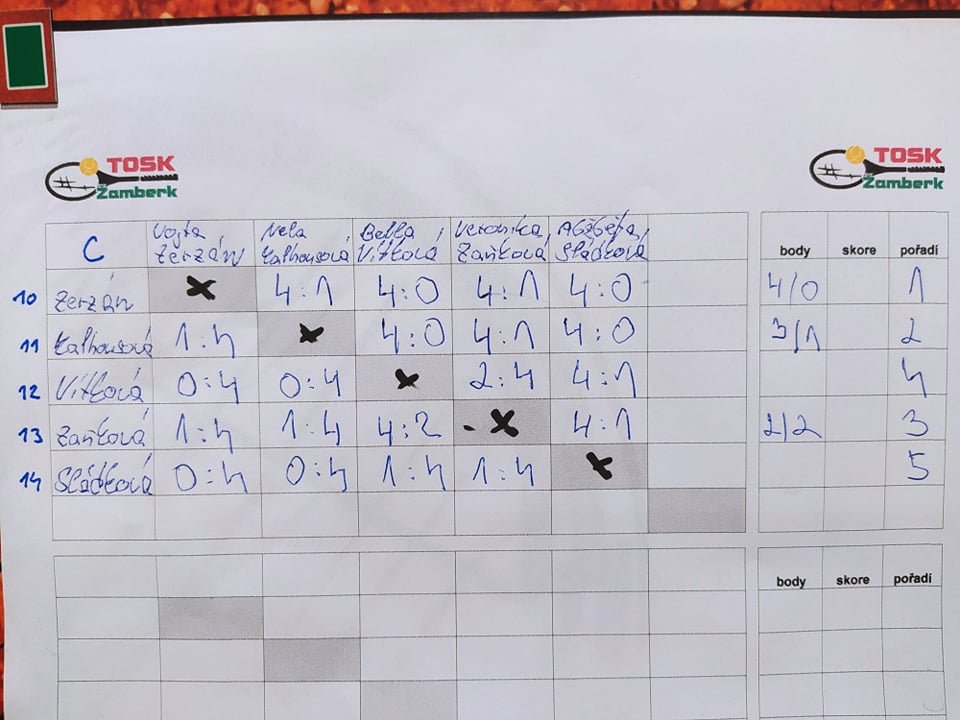 TOSK
Žamberk
TOSK
Žamberk
C Vojta Žerzán Nela Kalhousová Bella Vítková Veronika Zaňková Alžběta Sládková body skore pořadí
10 Žerzán 4:1 4:0 4:1 4:0 4/0 1
11 Kalhousová 1:4 4:0 4:1 4:0 3/1 2
12 Vítková 0:4 0:4 2:4 4:1 4
13 Zaňková 1:4 1:4 4:2 4:1 2/2 3
14 Sládková 0:4 0:4 1:4 1:4 5
body skore pořadí